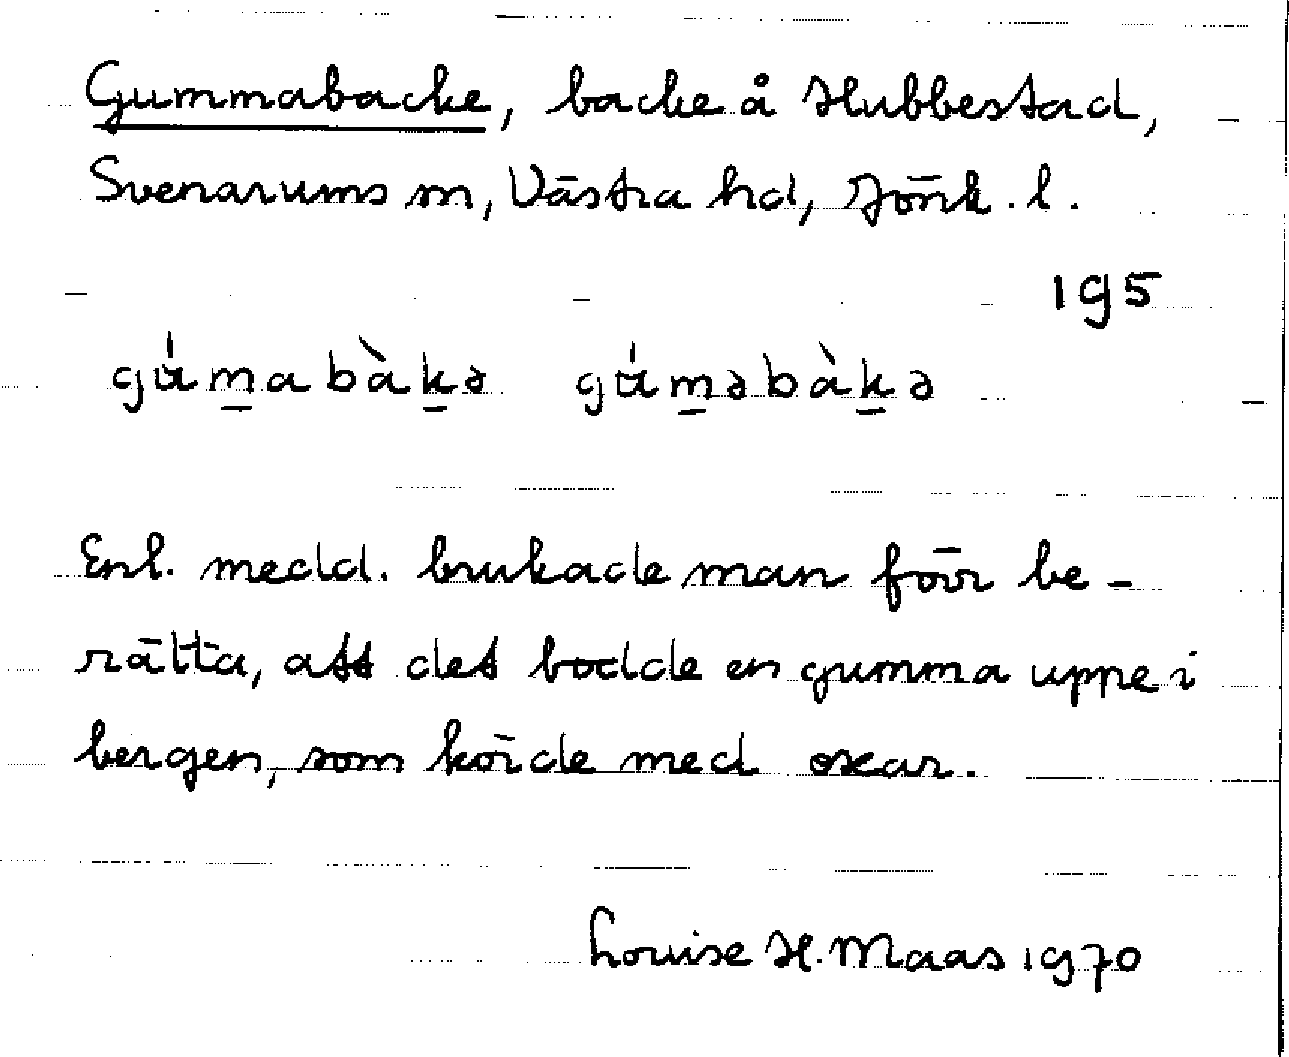 Gummabacke, backe å Hubbestad,
Svenarums sn, Västra hd, Jönk. l.
195
gúm̠abàk̠ə gúm̠əbàk̠ə
Enl. medd. brukade man förr be-
rätta, att det bodde en gumma uppe i
bergen, som körde med oxar.
Louise H. Maas 1970